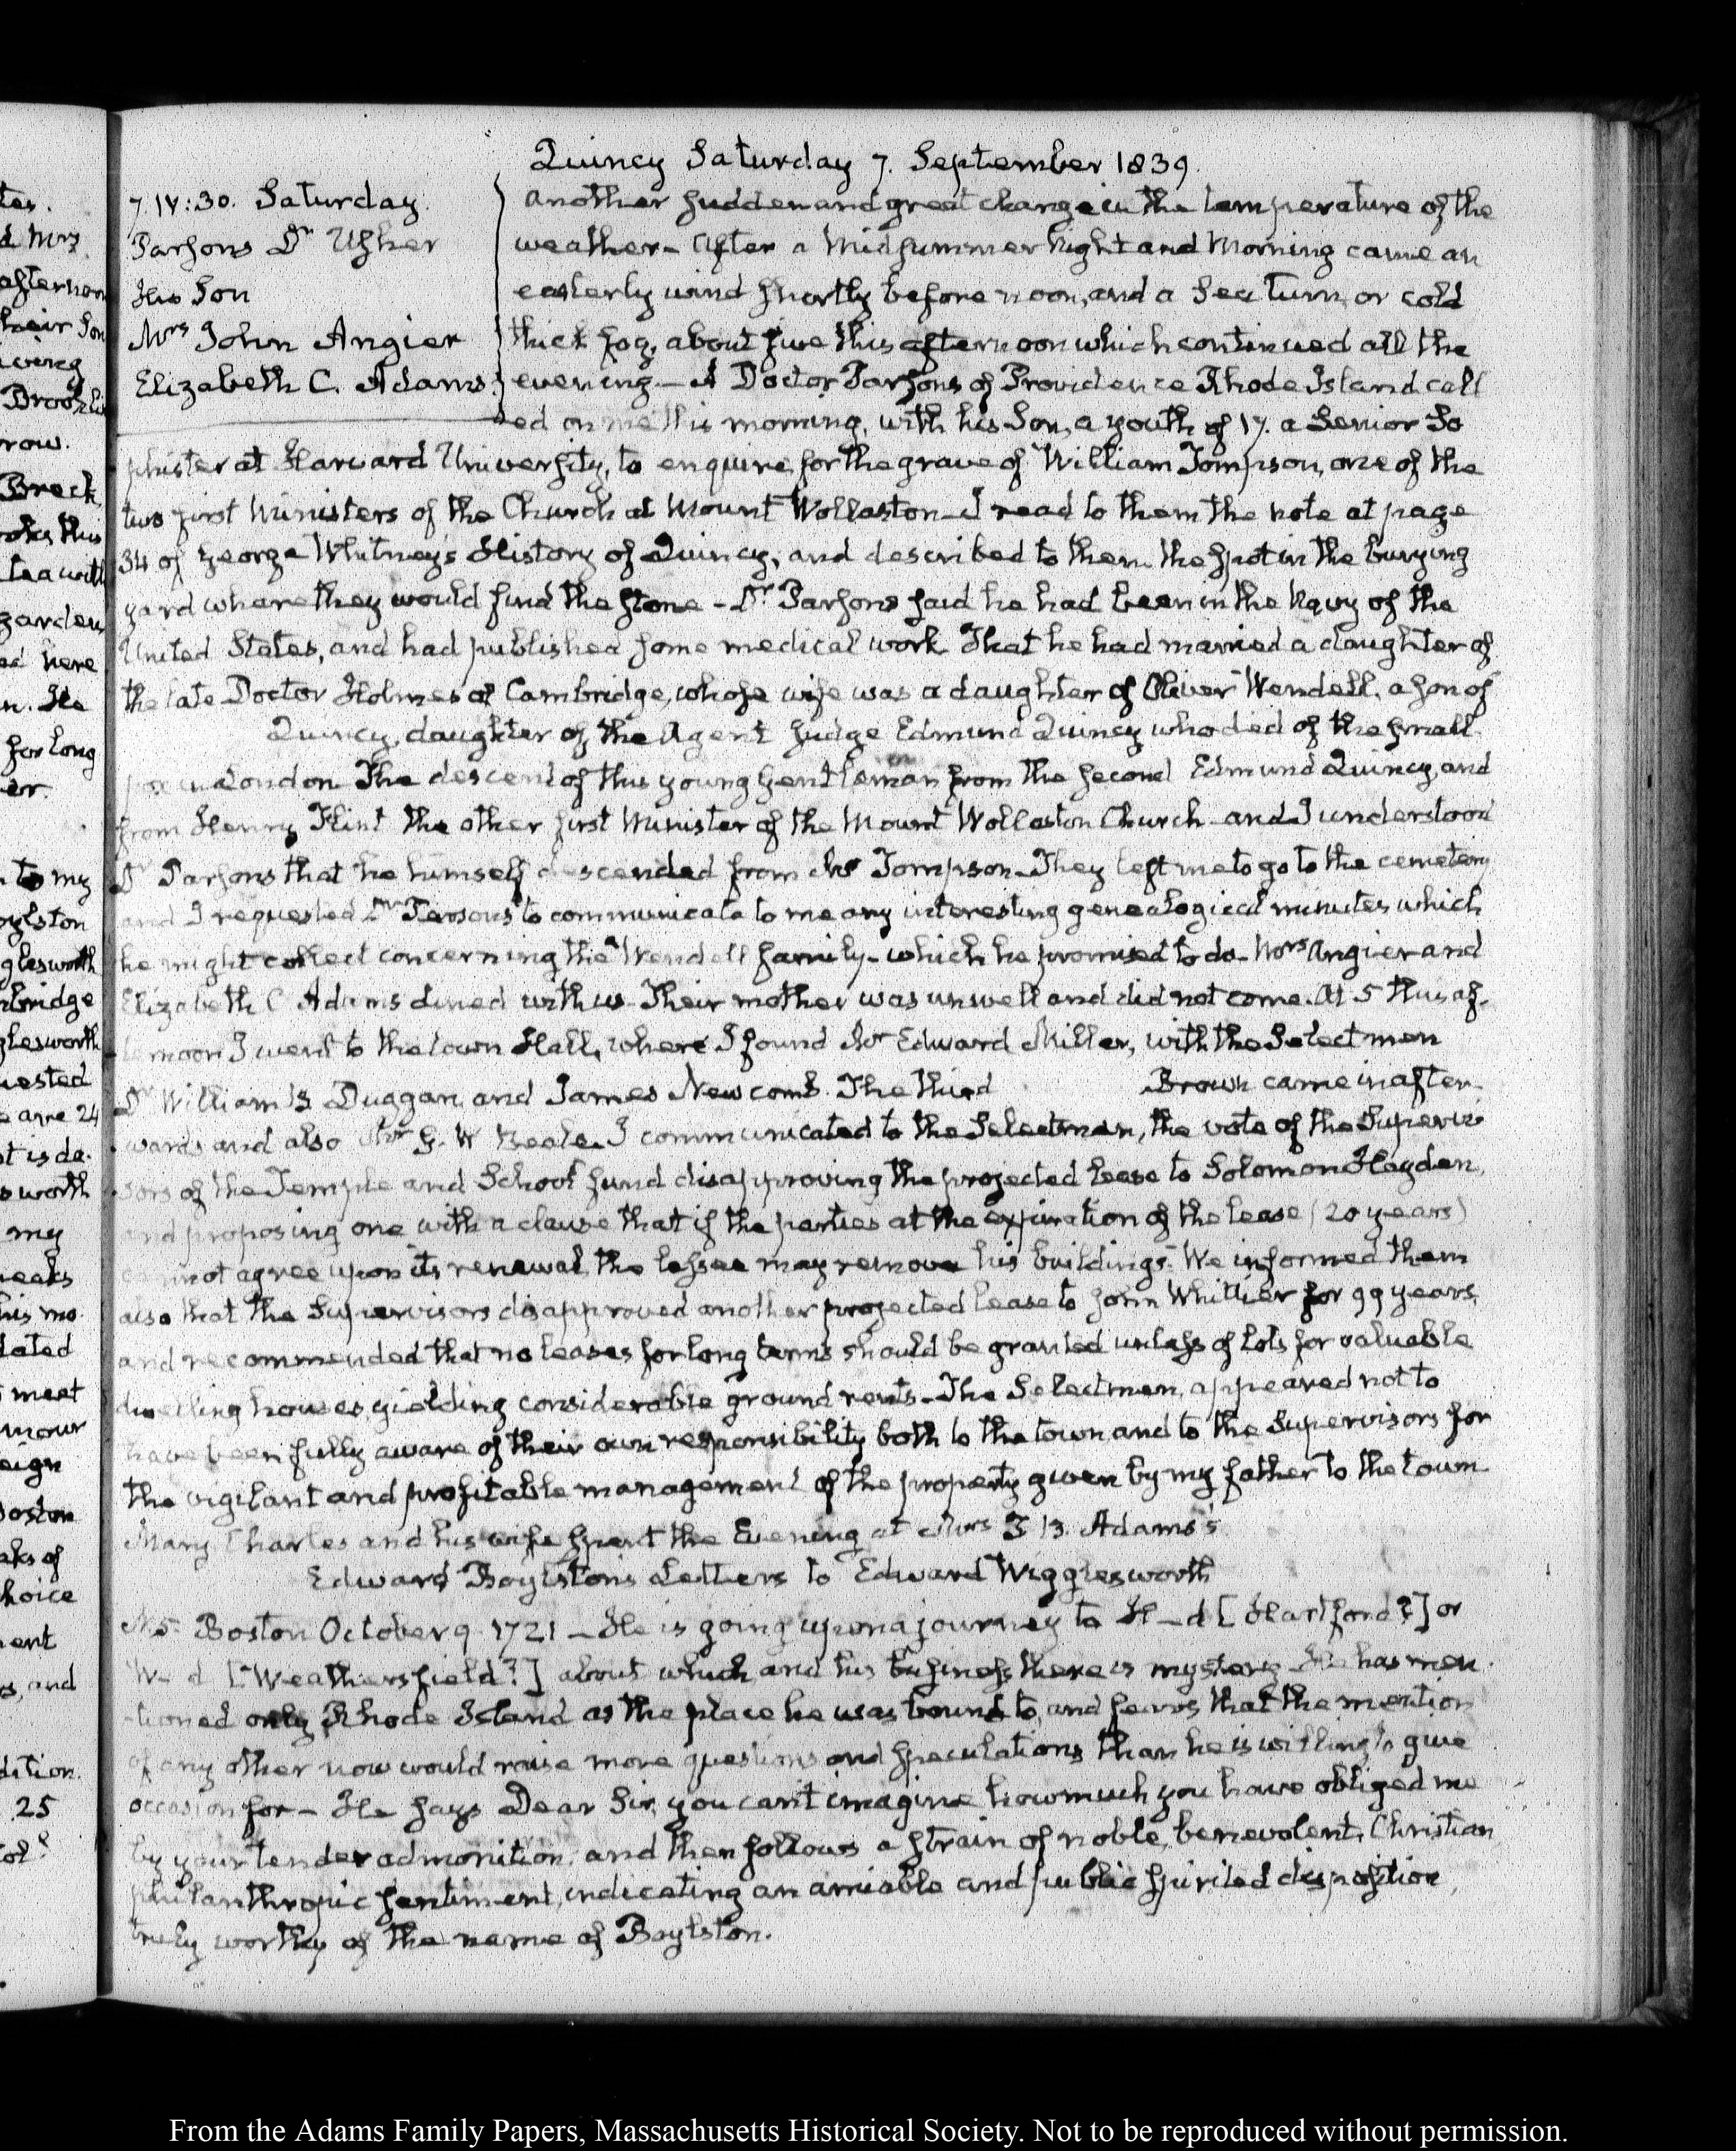 Quincy Saturday 7. September 1839.
7. IV:30. Saturday.
Parsons Dr Usher
His Son
Mrs John Angier
Elizabeth C. Adams
Another sudden and great change in the temperature of the
weather— After a Midsummer Night and Morning came an
easterly wind shortly before noon, and a Sea turn, or cold
thick fog, about five this afternoon which continued all the
evening— A Doctor Parsons of Providence Rhode Island call
ed on me this morning, with his Son, a youth of 17. a Senior So
phister at Harvard University, to enquire for the grave of William Tompson, one of the
two first Ministers of the Church at Mount Wollaston— I read to them the note at page
34 of George Whitney's History of Quincy, and described to them the spot in the burying
yard where they would find the stone— Dr Parsons said he had been in the Navy of the
United States, and had published some medical work. That he had married a daughter of
the late Doctor Holmes of Cambridge, whose wife was a daughter of Oliver Wendell, a son of
Quincy, daughter of the Agent Judge Edmund Quincy who died of the small
pox in London. The descent of this young Gentleman from the second Edmund Quincy, and
from Henry Flint the other first Minister of the Mount Wollaston Church— and I understood
Dr Parsons that he himself descended from Mr Tompson— They left me to go to the cemetery
and I requested Dr Parsons to communicate to me any interesting genealogical minutes which
he might collect concerning the Wendell family— which he promised to do— Mrs Angier and
Elizabeth C Adams dined with us. Their mother was unwell and did not come. At 5 this af-
ternoon I went to the town Hall, where I found Mr Edward Miller, with the Selectmen
Dr William B Duggan, and James Newcomb. The third Brown came in after-
wards and also Mr G. W Beale. I communicated to the Selectmen, the vote of the Supervi-
sors of the Temple and School fund disapproving the projected lease to Solomon Hayden,
and proposing one with a clause that if the parties at the expiration of the lease (20 years)
cannot agree upon its renewal, the lessee may remove his buildings. We informed them
also that the Supervisors disapproved another projected lease to John Whittier for 99 years,
and recommended that no leases for long terms should be granted unless of lots for valuable
dwelling houses, yielding considerable ground rents— The Selectmen, appeared not to
have been fully aware of their own responsibility both to the town and to the Supervisors for
the vigilant and profitable management of the property given by my father to the town
Mary, Charles and his wife spent the Evening at Mrs T. B. Adams's
Edward Boylston's Letters to Edward Wigglesworth
N. 5. Boston October 9. 1721— He is going upon a journey to H—d [Hartford?] or
W—d [Weathersfield?] about which and his business there is mystery. He has men
tioned only Rhode Island as the place he was bound to, and fears that the mention
of any other now would raise more questions and speculations than he is willing to give
occasion for— He says Dear Sir, you can't imagine how much you have obliged me
by your tender admonition, and then follows a strain of noble, benevolent, Christian
philanthropic sentiment, indicating an amiable and public spirited disposition,
truly worthy of the name of Boylston.
From the Adams Family Papers, Massachusetts Historical Society. Not to be reproduced without permission.